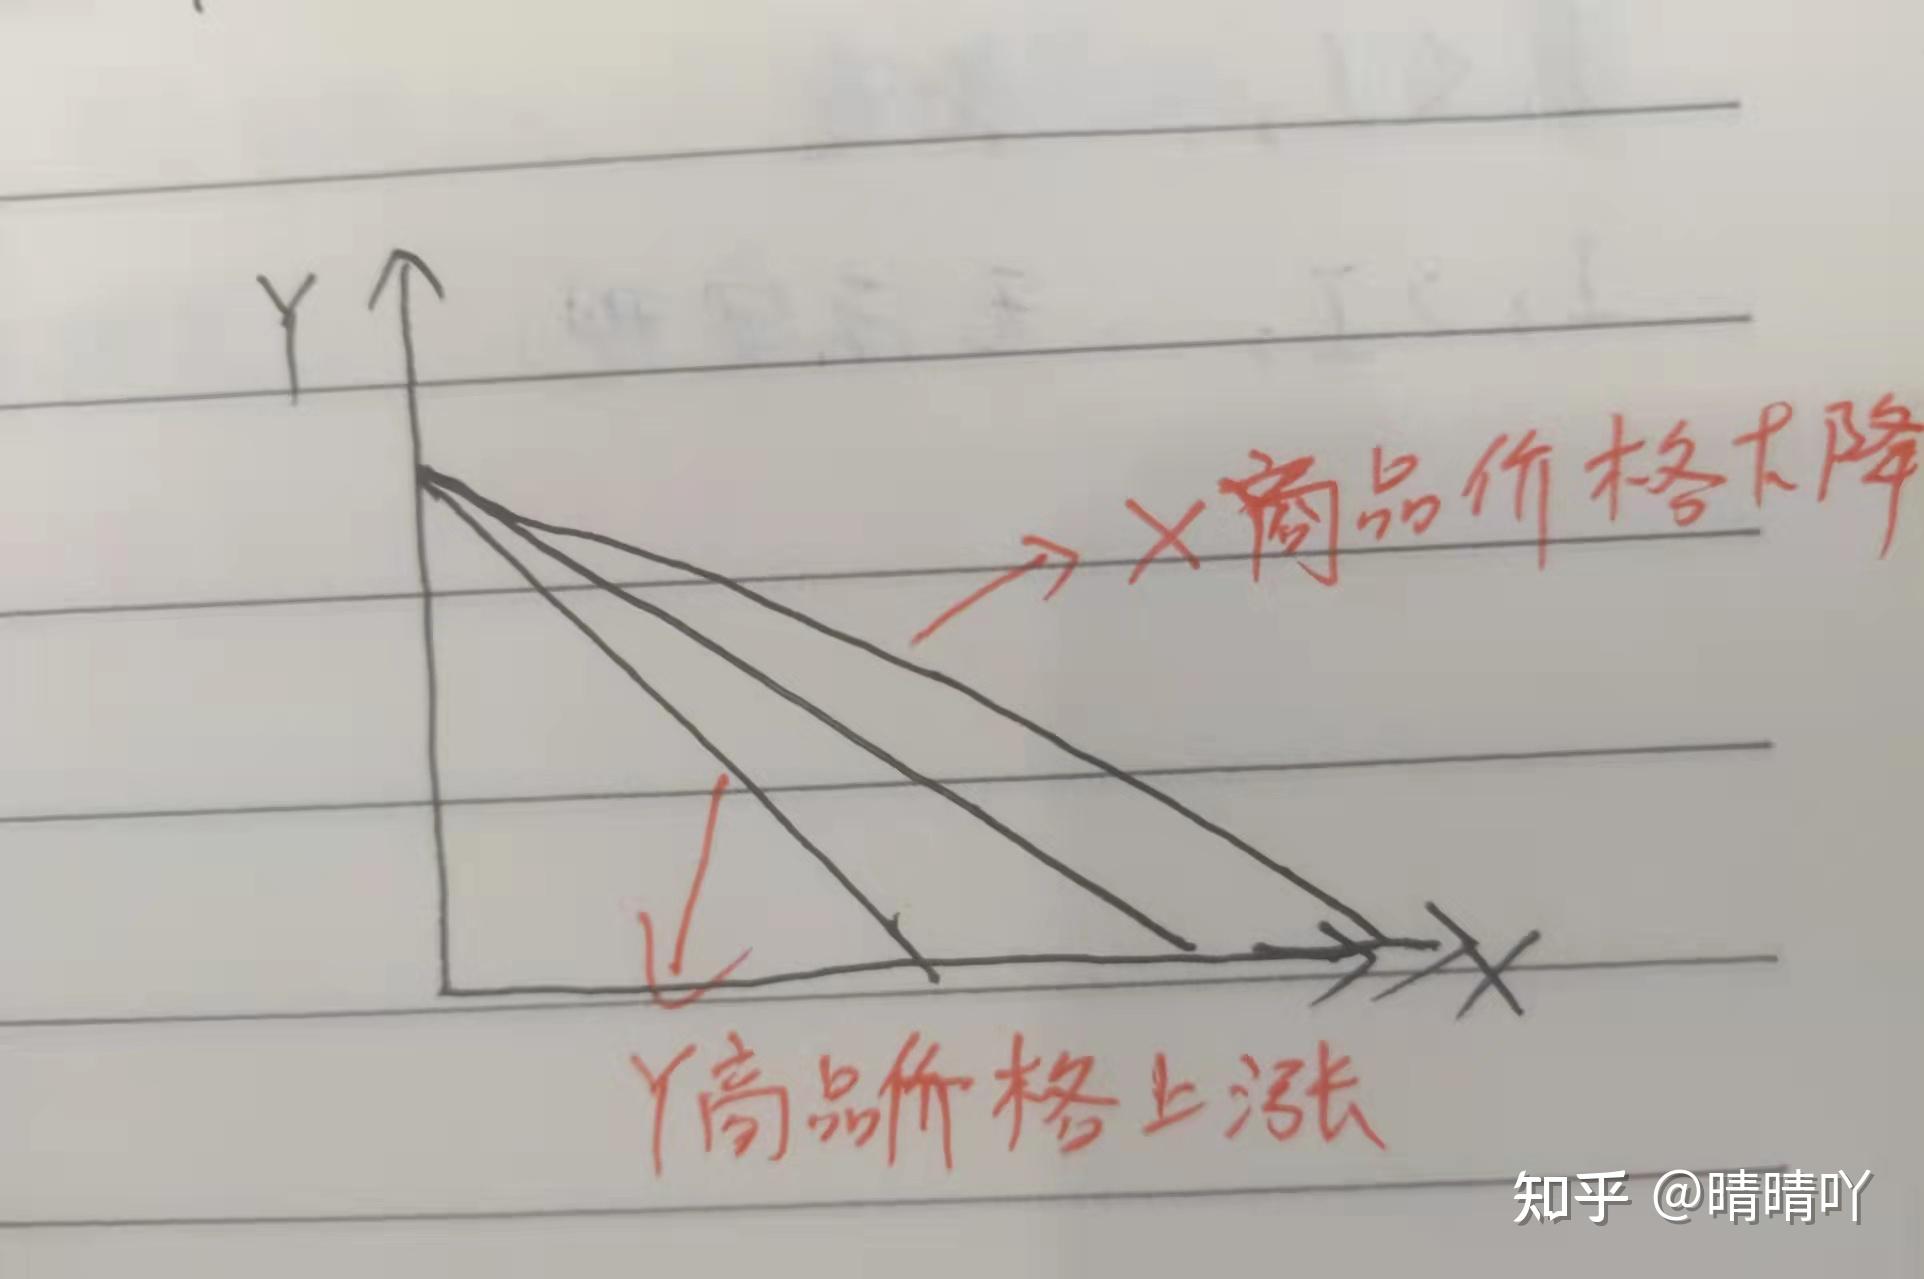 Y
X商品价格下降
X
Y商品价格上涨
知乎 @晴晴吖